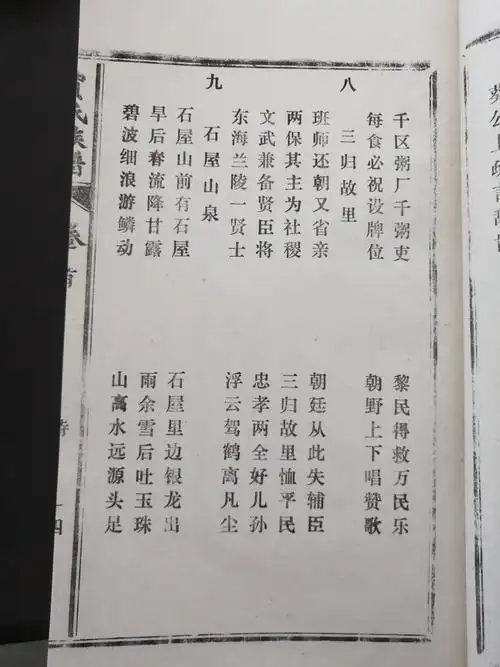 千区粥厂千粥吏
黎民得救万民乐
每食必祝设牌位
朝野上下唱赞歌
八
三归故里
班师还朝又省亲
朝廷从此失辅臣
两保其主为社稷
三归故里恤平民
文武兼备贤臣将
忠孝两全好儿孙
东海兰陵一贤士
浮云驾鹤离凡尘
九
石屋山泉
石屋山前有石屋
石屋里边银龙出
旱后春流降甘露
雨余雪后吐玉珠
碧波细浪游鳞动
山高水远源头足
氏族谱
卷首
诗
十四